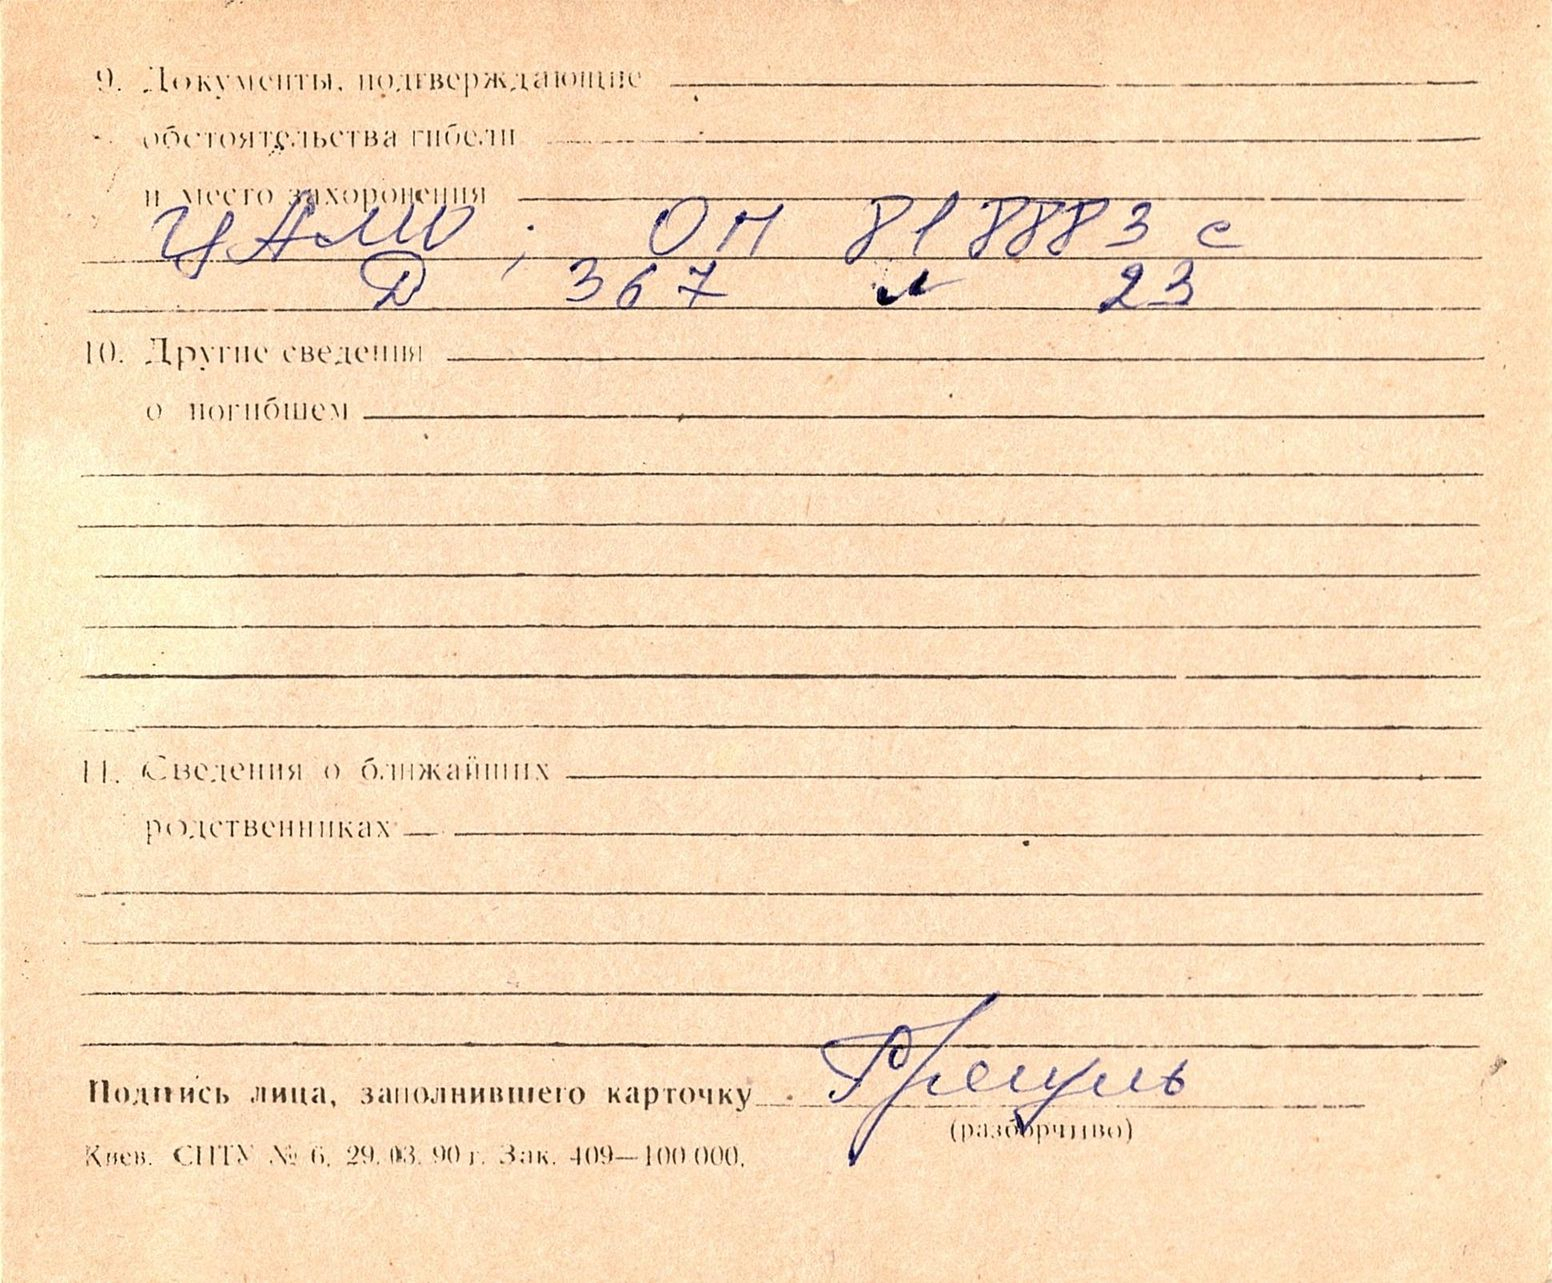 9. Документы, подтверждающие
обстоятельства гибели
и место захоронения
ЦАМО, ОП 818883 с
Д 367 л 23
10. Другие сведения
о погибшем
11. Сведения о ближайших
родственниках
Подпись лица, заполнившего карточку
(разборчиво)
Киев. СПТУ № 6. 29.03.90 г. Зак. 409—100 000.